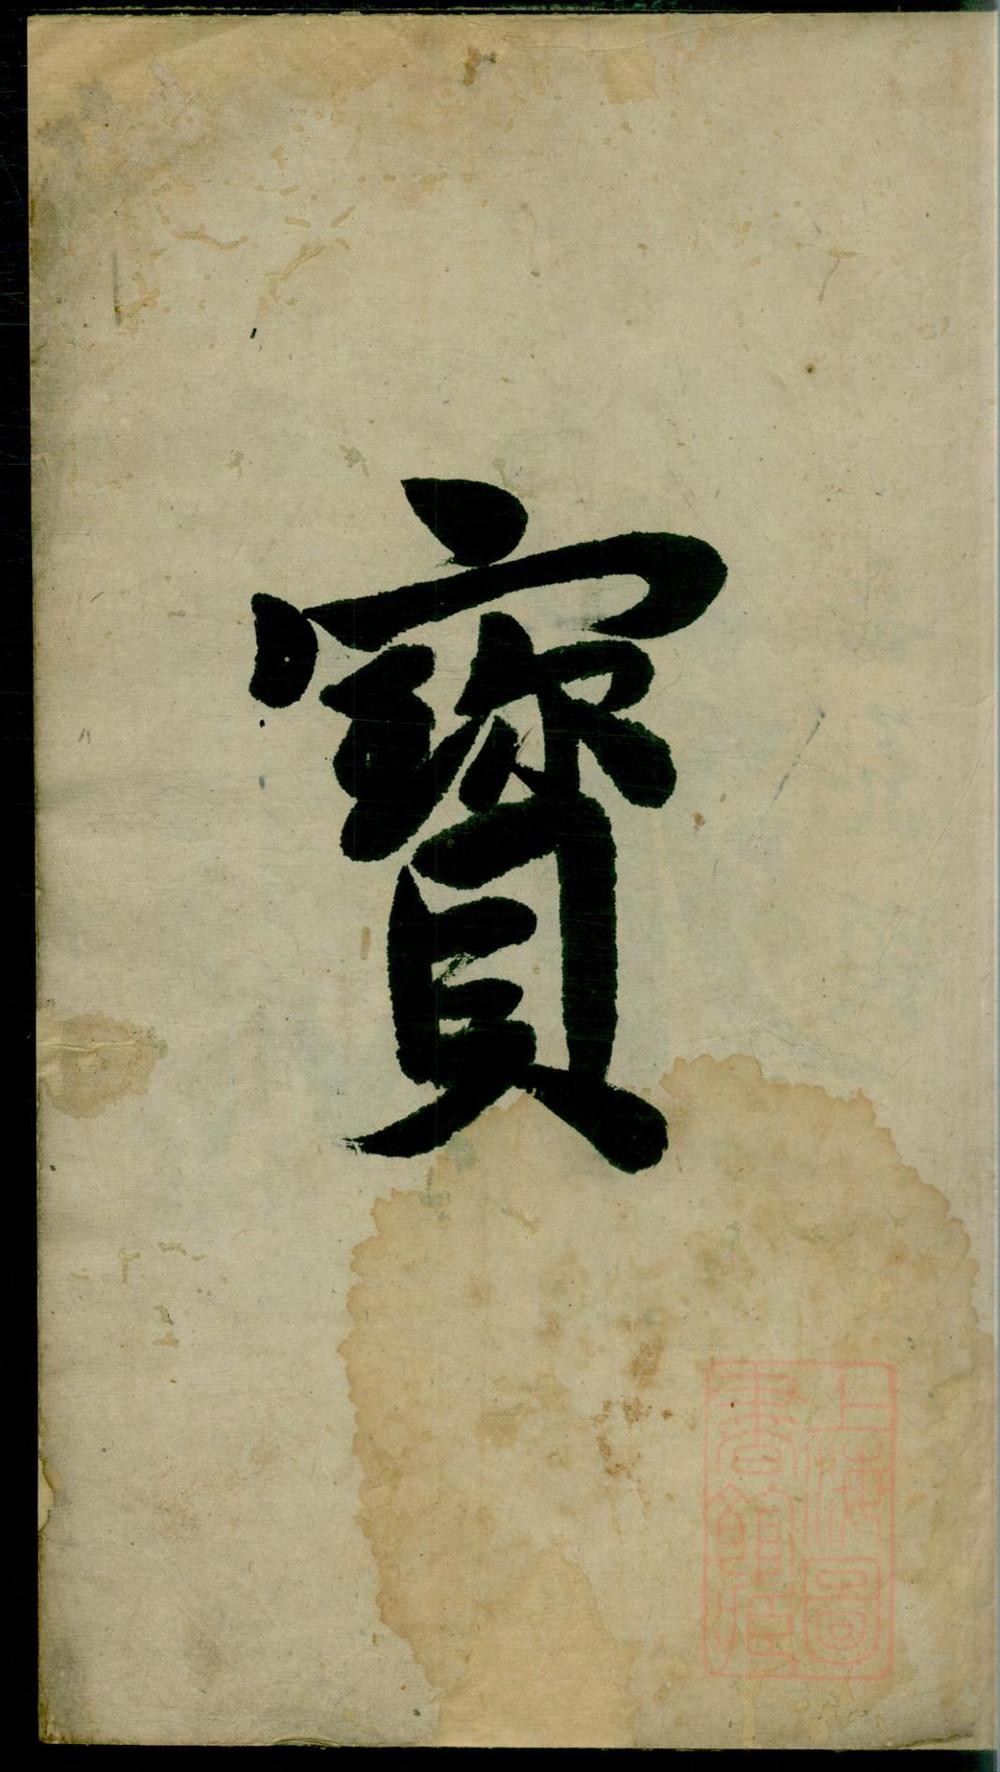 寳
上海圖
書館藏